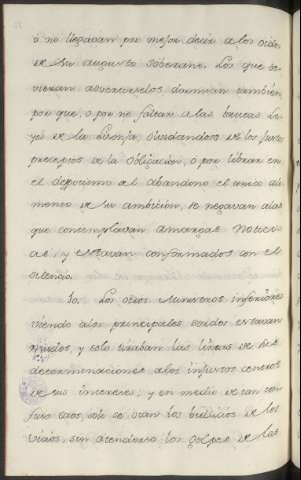 ó no llegavan por mejor decir a los oidos
de su augusto soberano. Los que de-
vieran advertirselos dormian tambien,
por que, o por no faltar a las bruscas le-
yes de la lisonja, olvidandose de los justos
preceptos de la obligación, o por librar en
el despotismo al abandono el unico di-
manso de su ambición, se negavan a las
que contemplavan amargas notici-
as, y estavan conformados con el
silencio.
Los otros Ministros inferiores
viendo a los principales caidos estavan
mudos, y solo tiraban las lineas de sus
determinaciones a los injustos centros
de sus intereses; y en medio de tan con-
fuso caos, solo se oian los bullicios de los
vicios, sin atenderse los golpes de las